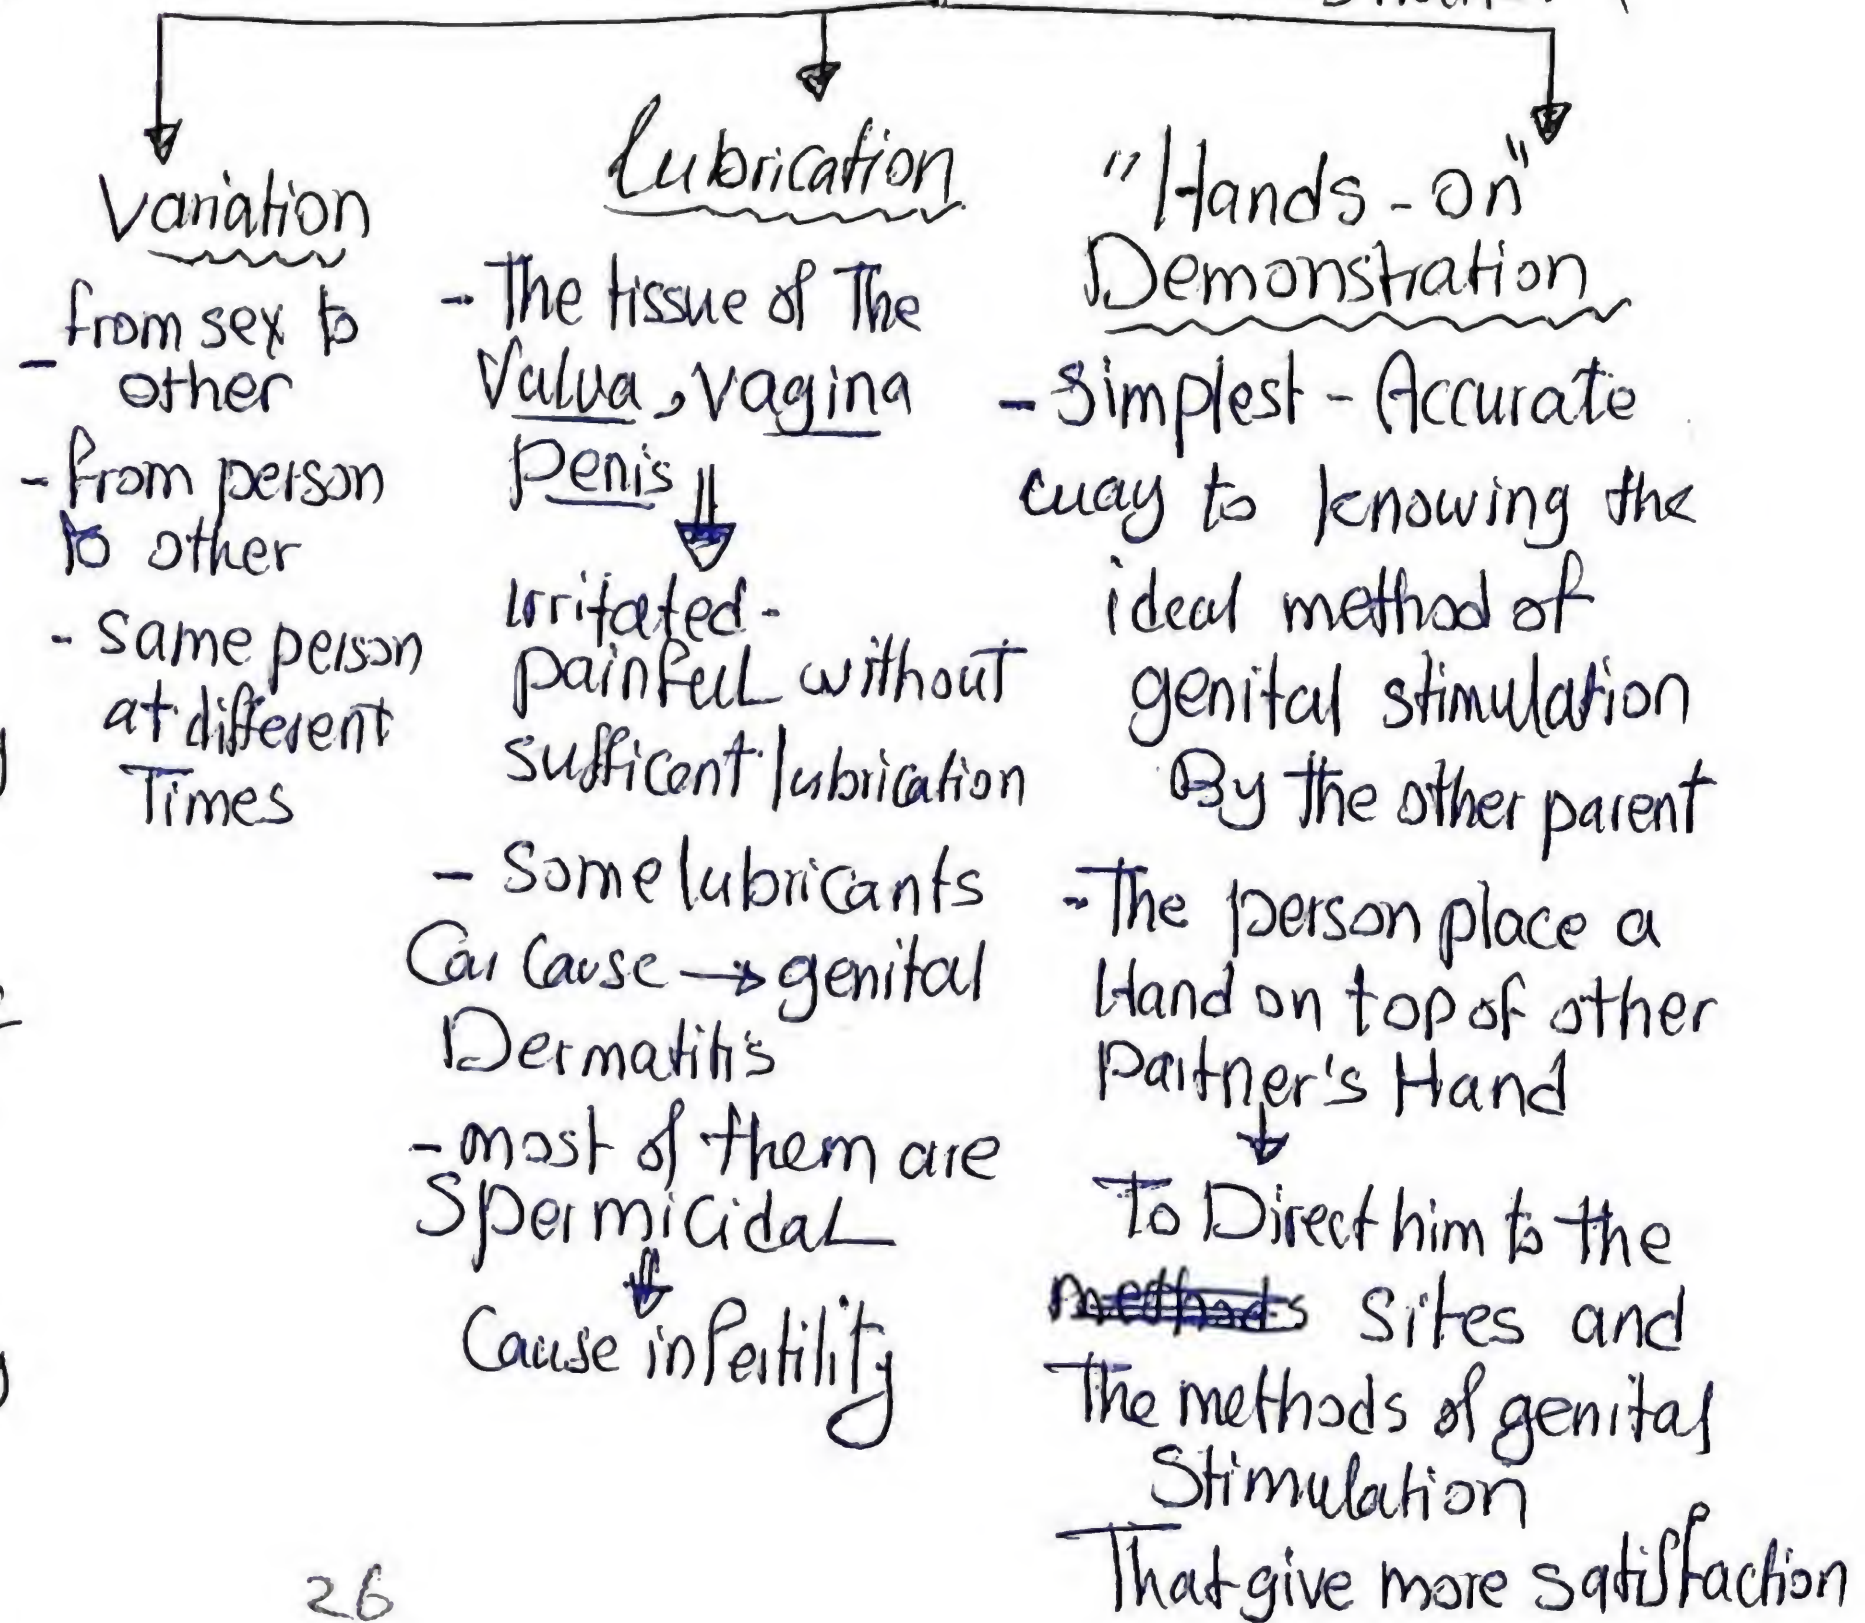 Variation
- from sex to
other
- from person
to other
- same person
at different
Times
Lubrication
- The tissue of The
Valua, vagina
penis
Irritated -
painful without
sufficent lubrication
- Some lubricants
Can Cause → genital
Dermatitis
- most of them are
Spermicidal
Cause infertility
"Hands - on"
Demonstration
- Simplest - Accurate
way to knowing the
ideal method of
genital stimulation
By the other parent
- The person place a
Hand on top of other
Partner's Hand
To Direct him to the
methods Sites and
The methods of genital
Stimulation
That give more satisfaction
26